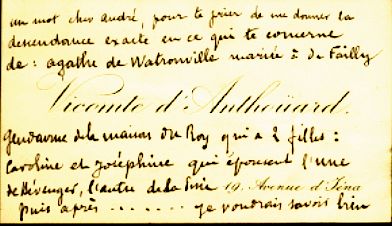 un mot cher andré, pour te prier de me donner la
descendance exacte en ce qui te concerne
de : agathe de Watronville mariée à de Failly
Vicomte d'Anthoüard.
Gendarme de la maison du Roy qui a 2 filles :
Caroline et Joséphine qui épousent l'une
de Bévenger, l'autre de la
19, Avenue d'Iéna
puis après ....... je voudrais savoir bien